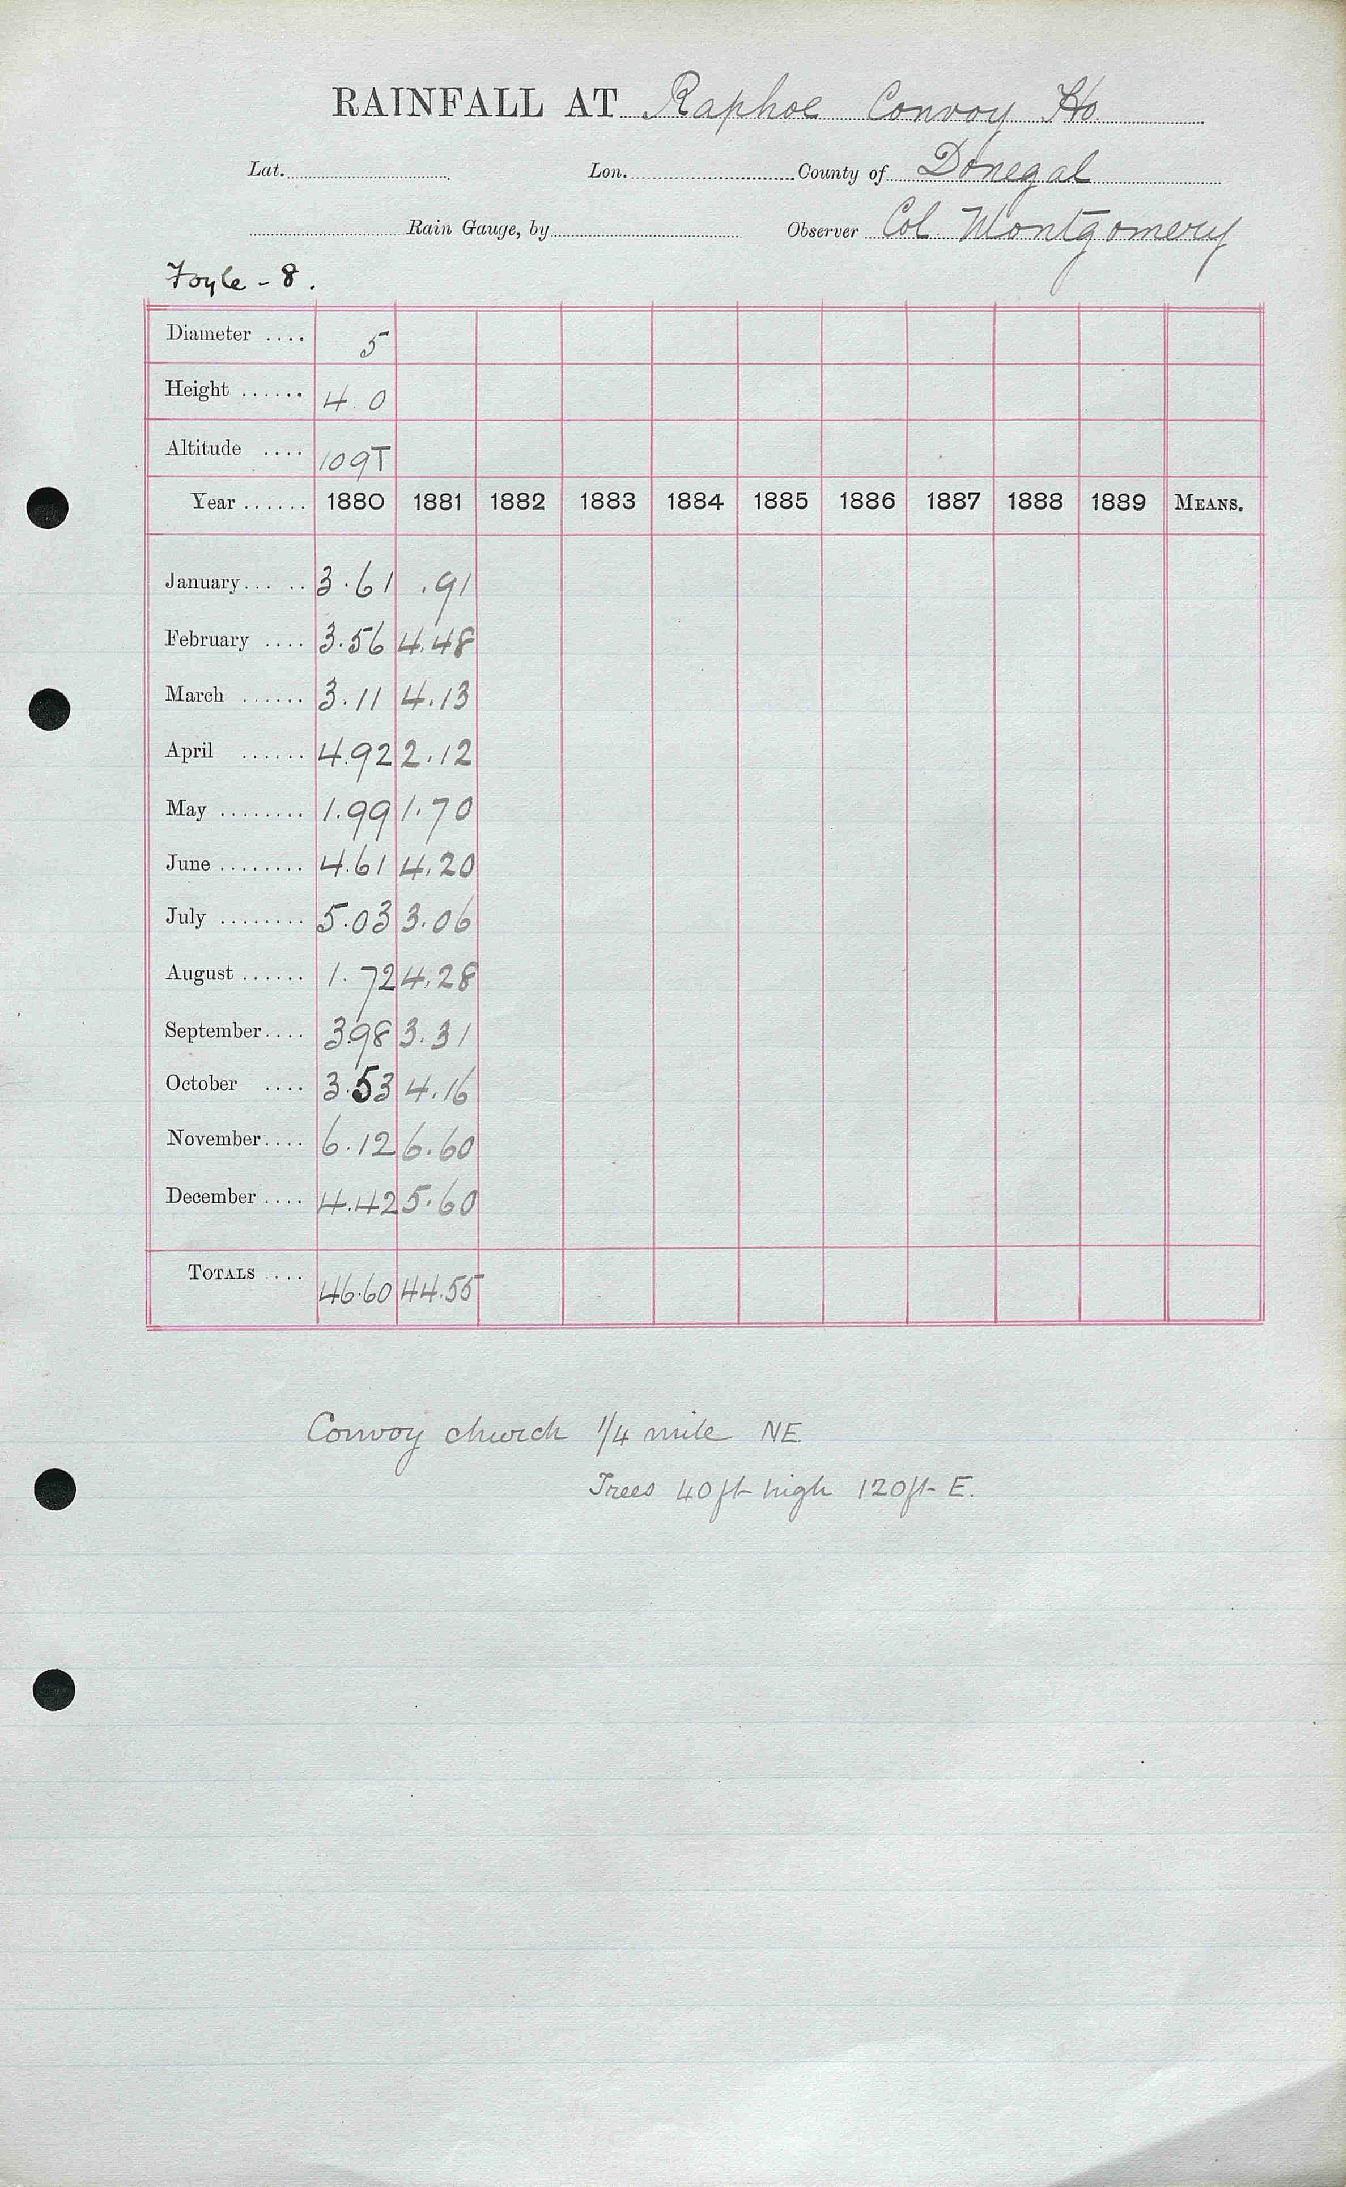 RAINFALL AT Raphoe Convoy Ho.
Lat. Lon. County of Donegal
Rain Gauge, by Observer Col Montgomery
Foyle - 8.
Diameter .... 5
Height ...... 4 0
Altitude .... 109T
Year ...... 1880 1881 1882 1883 1884 1885 1886 1887 1888 1889 MEANS.
January... .. 3.61 .91
February .... 3.56 4.48
March ...... 3.11 4.13
April ...... 4.92 2.12
May ........ 1.99 1.70
June ........ 4.61 4.20
July ........ 5.03 3.06
August ...... 1.72 4.28
September.... 3.98 3.31
October .... 3.53 4.16
November.... 6.12 6.60
December .... 4.42 5.60
TOTALS .... 46.60 44.55
Convoy church 1/4 mile NE
Trees 40ft high 120ft E.